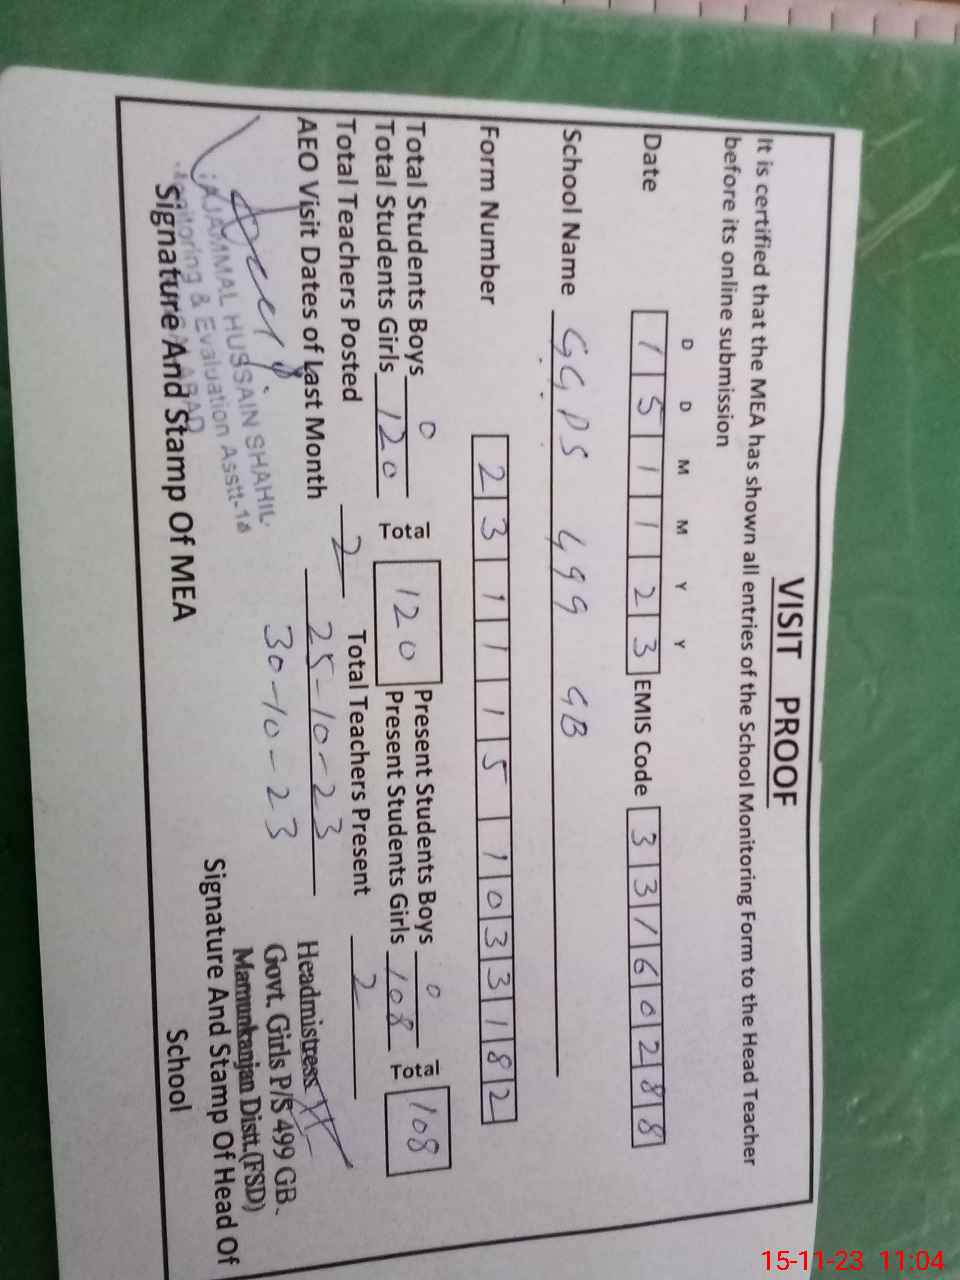 VISIT PROOF
It is certified that the MEA has shown all entries of the School Monitoring Form to the Head Teacher
before its online submission
D D M M Y Y
Date 1 5 1 1 2 3 EMIS Code 3 3 1 6 0 2 8 8
School Name GGPS 499 GB
Form Number 2 3 1 1 1 5 1 0 3 3 1 8 2
Total Students Boys 0 Total 120 Present Students Boys 0 Total 108
Total Students Girls 120 Present Students Girls 108
Total Teachers Posted 2 Total Teachers Present 2
AEO Visit Dates of Last Month 25-10-23
30-10-23
HUSSAIN SHAHIL
& Evaluation Asstt-18
Signature And Stamp Of MEA
Headmistress
Govt. Girls P/S 499 GB.
Mamunkanjan Distt.(FSD)
Signature And Stamp Of Head Of
School
15-11-23 11:04